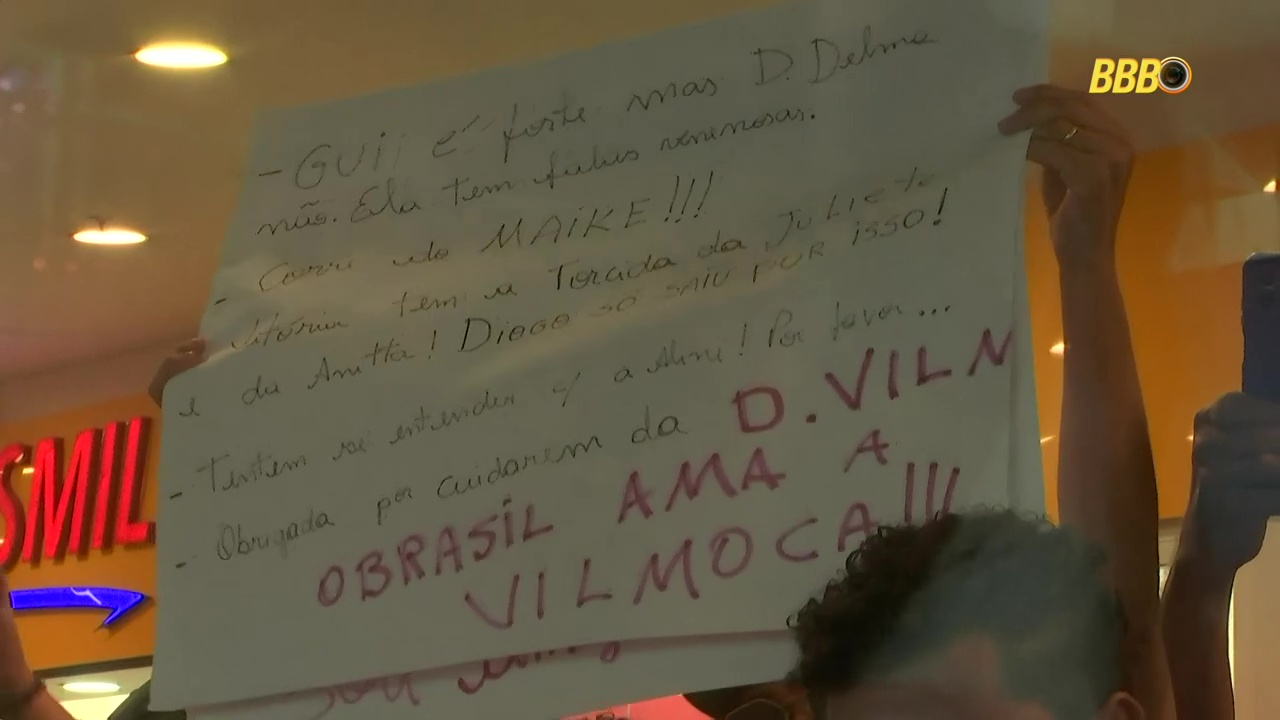 BBB
- GUI é forte mas D. Delma
não. Ela tem falas venenosas.
- MAIKE!!!
tem a Torcida da Juliete
e da Anitta! Diogo só saiu POR ISSO!
- Tentem se entender c/ a Aline! Por favor...
- Obrigada por cuidarem da D. VILM
O BRASIL AMA A
VILMOCA!!!
Sou
SMIL